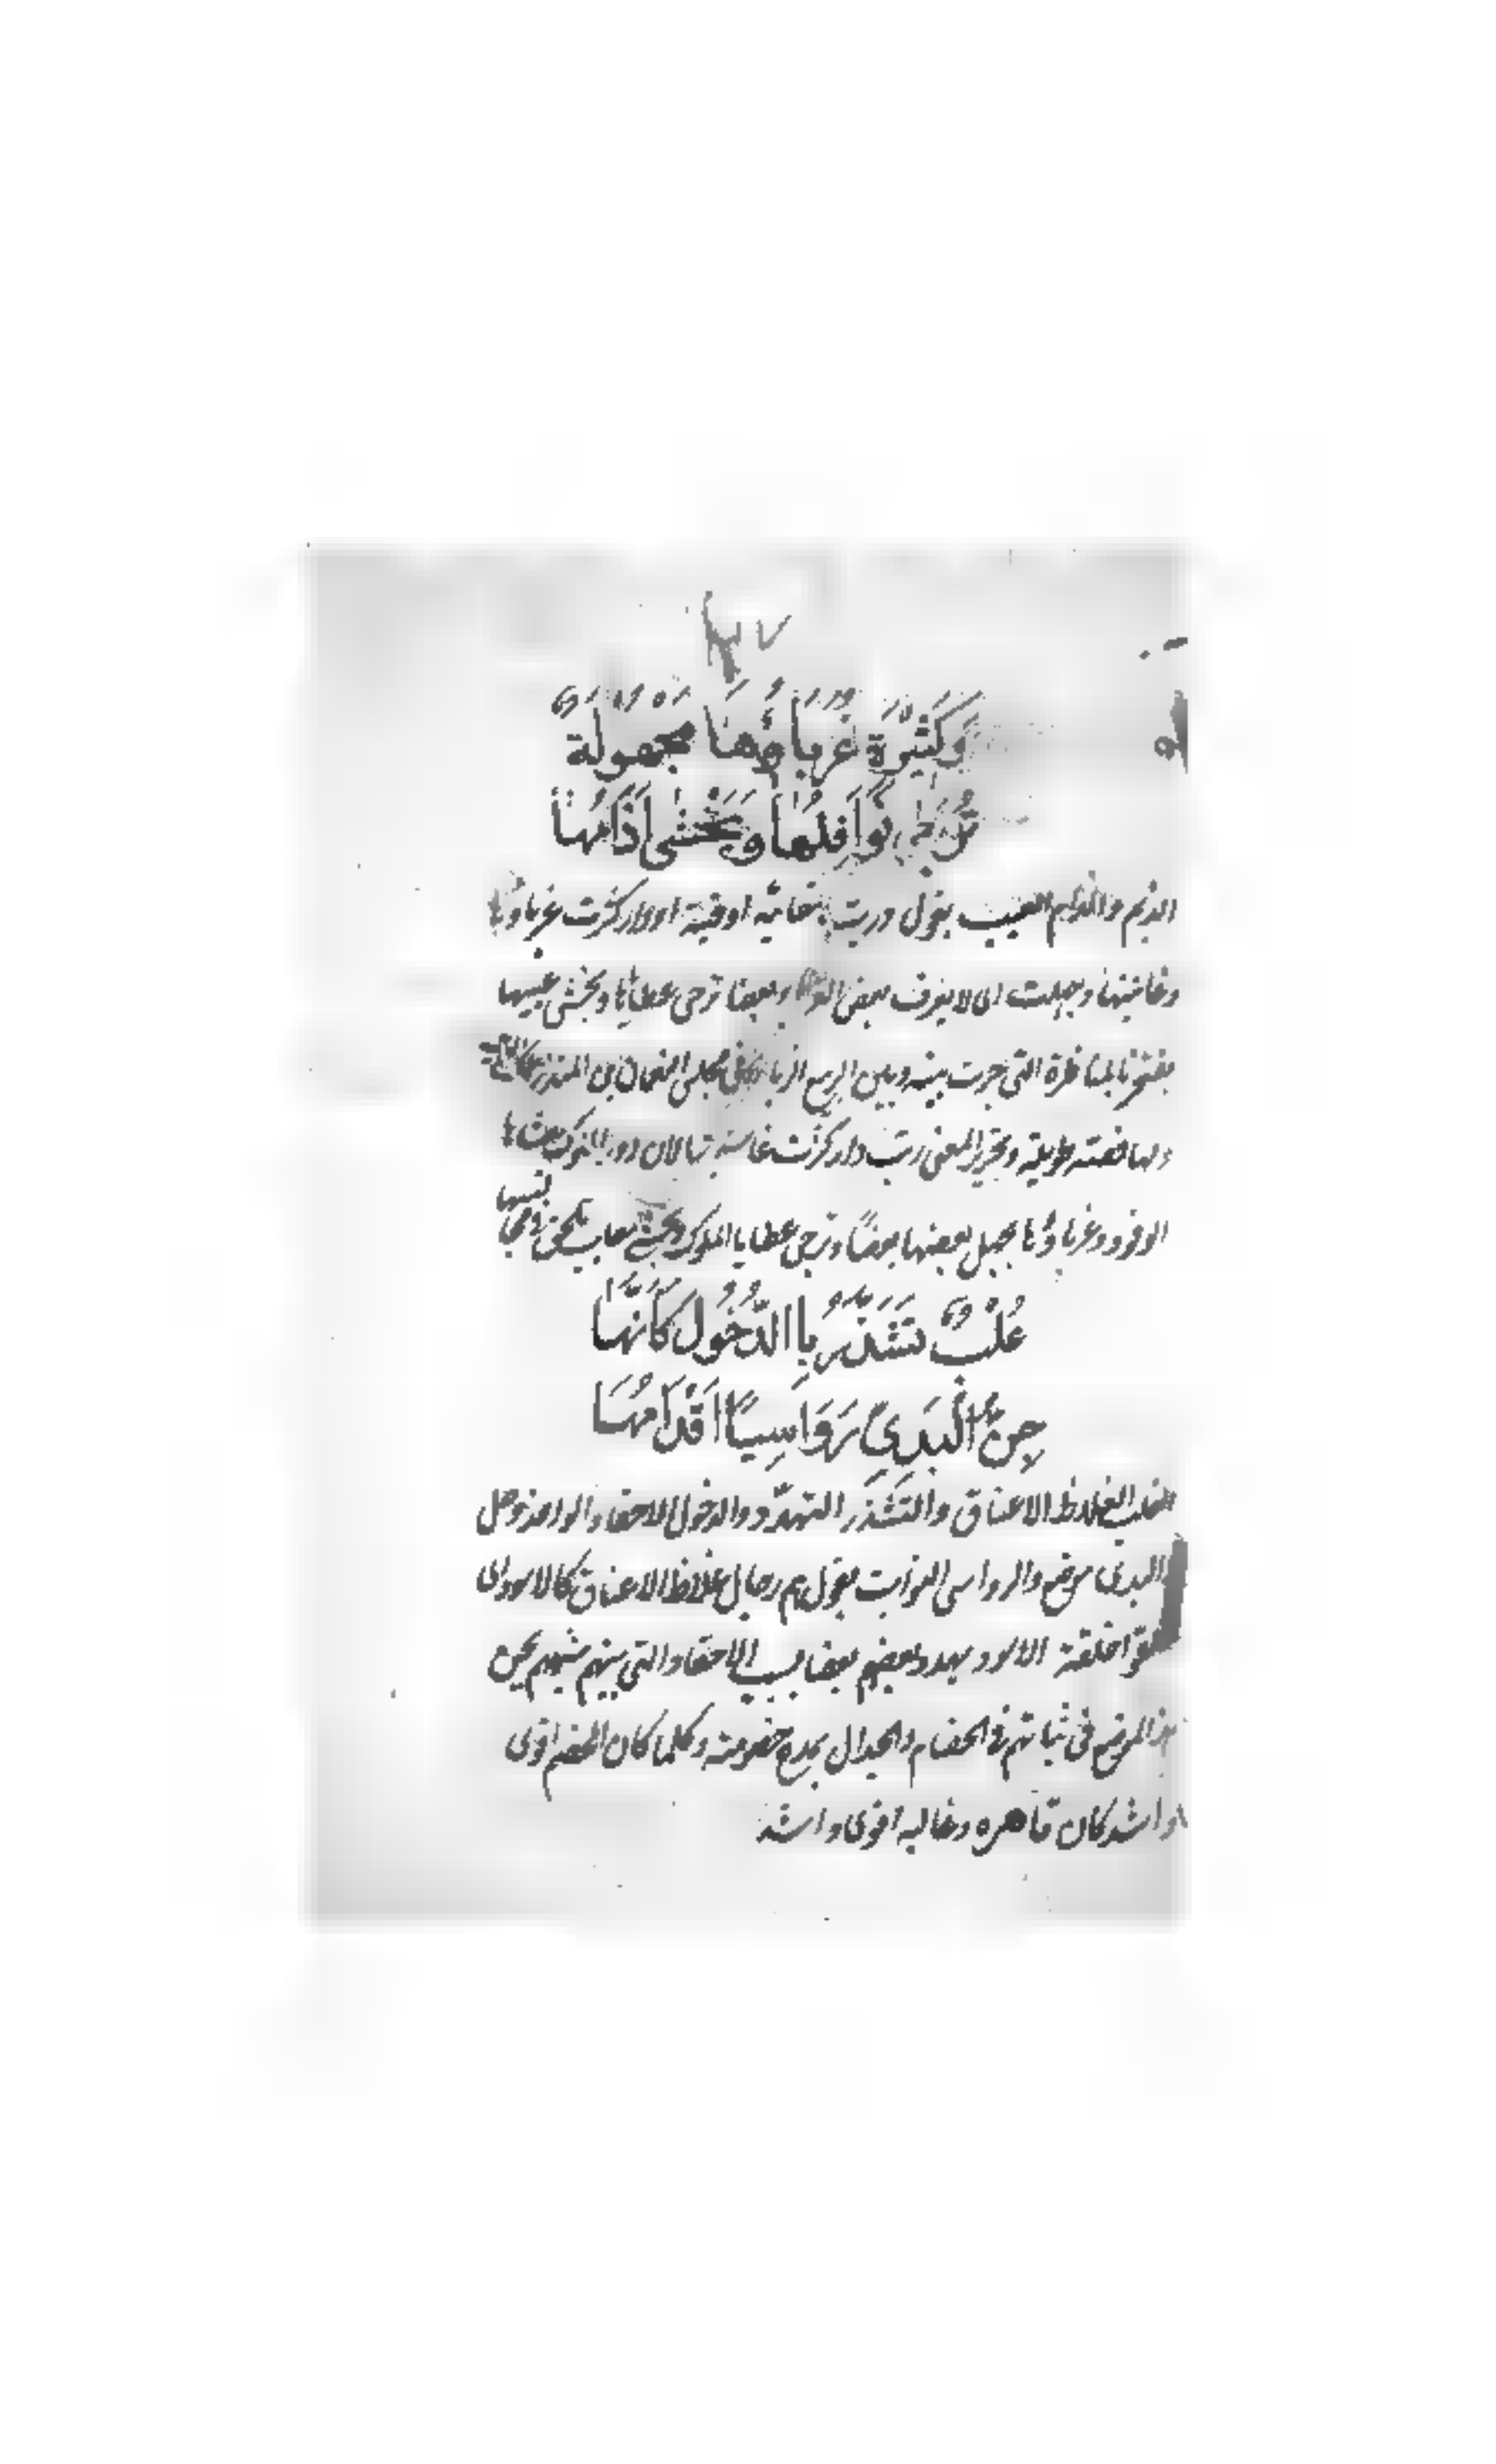 وَكَثِيْرَةٍ غُرَبَاؤُهَا مَجْهُولَةٌ
تُرْجَى نَوَافِلُهَا وَيُخْشَى ذَامُهَا
الذيم والذام العيب يقول ورب مقامة او قبة او دار كثرت غرباؤها
وغاشيتها وجهلت اى لا يعرف بعض الغرباء بعضا ترجى عطاياها ويخشى عيبها
يفتخر بالمناظرة التى جرت بينه وبين الربيع ابن زياد فى مجلس النعمان بن المنذر
ولها قصة طويلة وتحرير المعنى رب دار كثرت غاشيتها لان دور الملوك يغشاها
الوفود وغرباؤها يجهل بعضها بعضًا وترجى عطايا الملوك ويخشى معايب تلحق فى مجالسها
غُلْبٌ تَشَذَّرُ بِاالذُّحُولِ كَأَنَّهَا
جِنُّ الْبَدِيِّ رَوَاسِيًا اَقْدَامُهَا
الغلب الغلاظ الاعناق والتَّشَذُّر التهدد والذحول الاحقاد الواحد ذحل
البدى موضع والرواسى الثوابت يقول هم رجال غلاظ الاعناق كالاسود اى
خلقوا خلقة الاسود يهدد بعضهم بعضا بسبب الاحقاد التى بينهم شبههم بجن
هذا الموضع فى ثباتهم فى الخصام والجدال يمدح خصومته وكلما كان الخصم اقوى
واشد كان قاهره وغالبه اقوى واشد